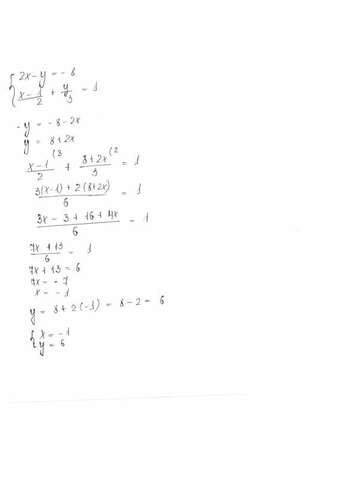 { 2x - y = -8
{ (x-1)/2 + y/3 = 1
-y = -8-2x
y = 8+2x
(x-1)/2 (3 + (8+2x)/3 (2 = 1
(3(x-1)+2(8+2x))/6 = 1
(3x-3+16+4x)/6 = 1
(7x+13)/6 = 1
7x+13=6
7x=-7
x=-1
y = 8+2(-1) = 8-2 = 6
{ x=-1
{ y=6